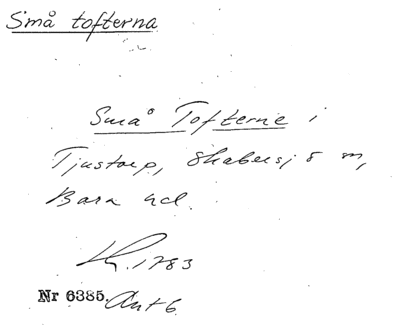 Små tofterna
Små Tofterne i
Tjustorp, Skabersj ö m,
Bara hd.
Kh. 1783
Nr 6385. Ant 6.